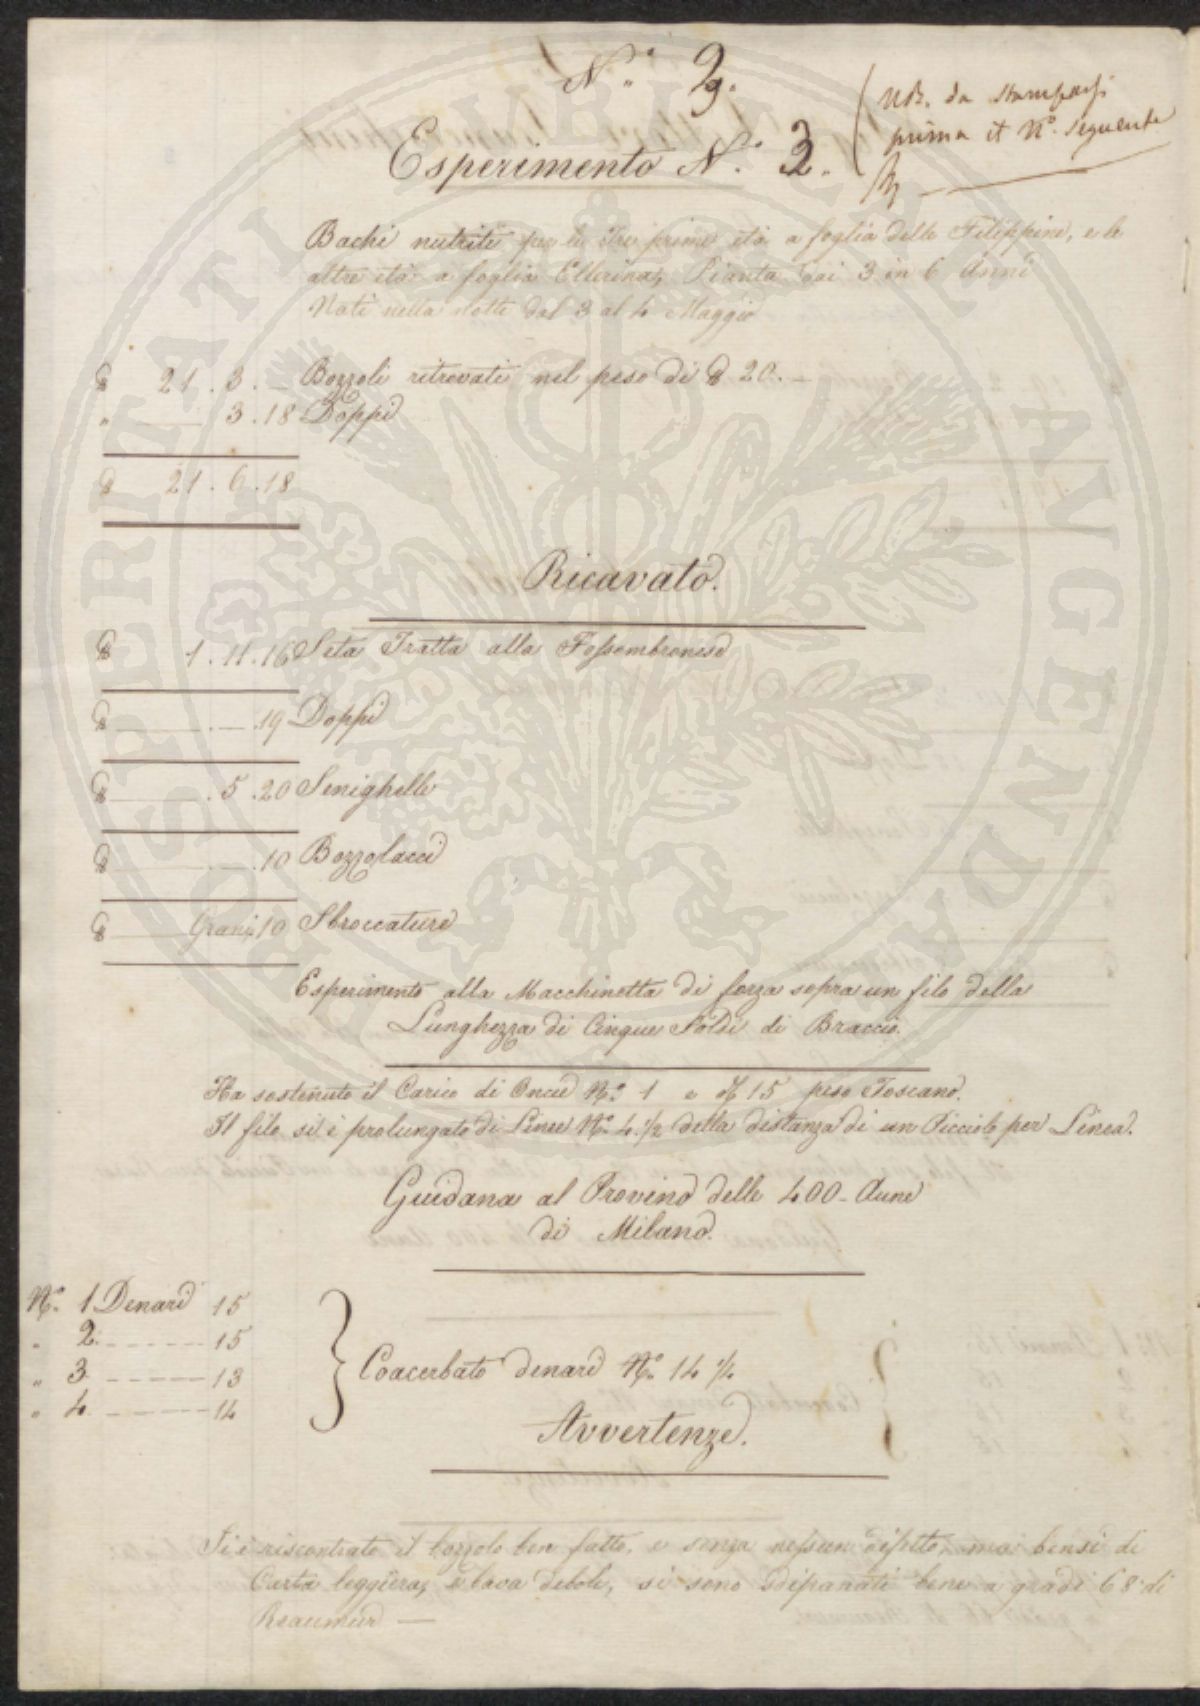 N.° 9.
NB. da stamparsi
prima il N.° seguente
Esperimento N.° 3.
Bachi nutriti per le tre prime età a foglia delle Filippine, e le
altre età a foglia Ellerina, Pianta dai 3 in 6 Anni
Nati nella notte dal 3 al 4 Maggio
℔ 21 . 3 . — Bozzoli ritrovati nel peso di ℔ 20. —
" 3 . 18 Doppi
℔ 21 . 6 . 18
Ricavato.
℔ 1 . 11 . 16 Seta Tratta alla Fossombronese
℔ — . — . 19 Doppi
℔ — . 5 . 20 Senighelle
℔ — . — . 10 Bozzolacci
℔ — Grani 10 Sbroccature
Esperimento alla Macchinetta di forza sopra un filo della
Lunghezza di Cinque Soldi di Braccio.
Ha sostenuto il Carico di Oncie N.° 1 e 15 peso Toscano.
Il filo si è prolungato di Linee N.° 4. ½ della distanza di un Picciolo per Linea.
Guidana al Provino delle 400 - Aune
di Milano.
N.° 1 Denari 15
" 2. ------- 15
" 3 ------- 13
" 4. ------- 14
Coacerbato denari N.° 14 ¼
Avvertenze.
Si è riscontrato il bozzolo ben fatto, e senza nessun difetto, ma bensì di
Carta leggiera, e bava debole, si sono dipanati bene a gradi 68 di
Reaumur —
PROSPERITATI PUBLICAE AUGENDAE